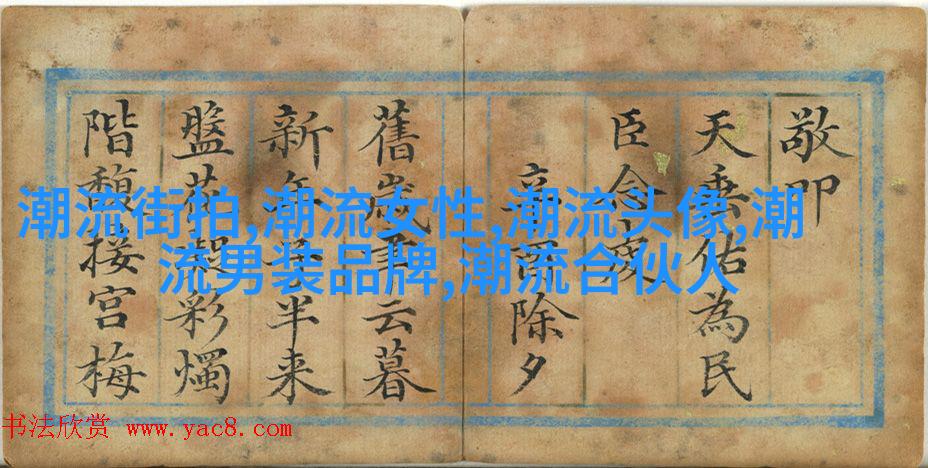 敬叩
天垂佑為民
臣念
辛除夕
舊歲聿云暮
新年半来
盤花凝彩燭
階馥接宮梅
潮流街拍,潮流女性,潮流头像,潮
流男装品牌,潮流合伙人
书法欣赏 www.yac8.com